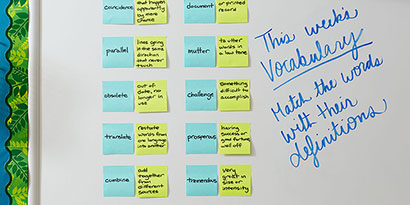 coincidence
that happen
apparently by
mere chance
document
or printed
record
parallel
lines going
in the same
direction
that never
touch
mutter
to utter
words in
a low tone
obsolete
out of
date, no
longer in
use
challenge
something
difficult to
accomplish
translate
restate
words from
one language
into another
prosperous
having
success or
good fortune,
well off
combine
add
together
from
different
sources
tremendous
very
great in
size or
intensity
This week's
Vocabulary
Match the words
with their
definitions